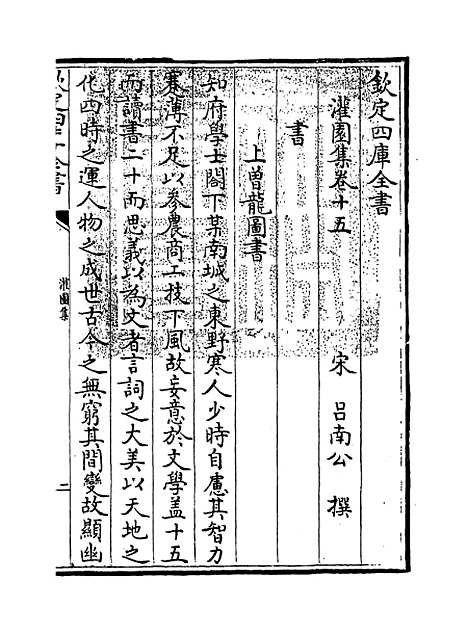 欽定四庫全書
灌園集卷十五
宋 呂南公 撰
書
上曽龍圖書
知府學士閣下某南城之東野寒人少時自慮其智力
蹇薄不足以參農商工技下風故妄意於文學盖十五
而讀書二十而思義以為文者言詞之大美以天地之
化四時之運人物之成世古今之無窮其間變故顯幽
欽定四庫全書
灌園集